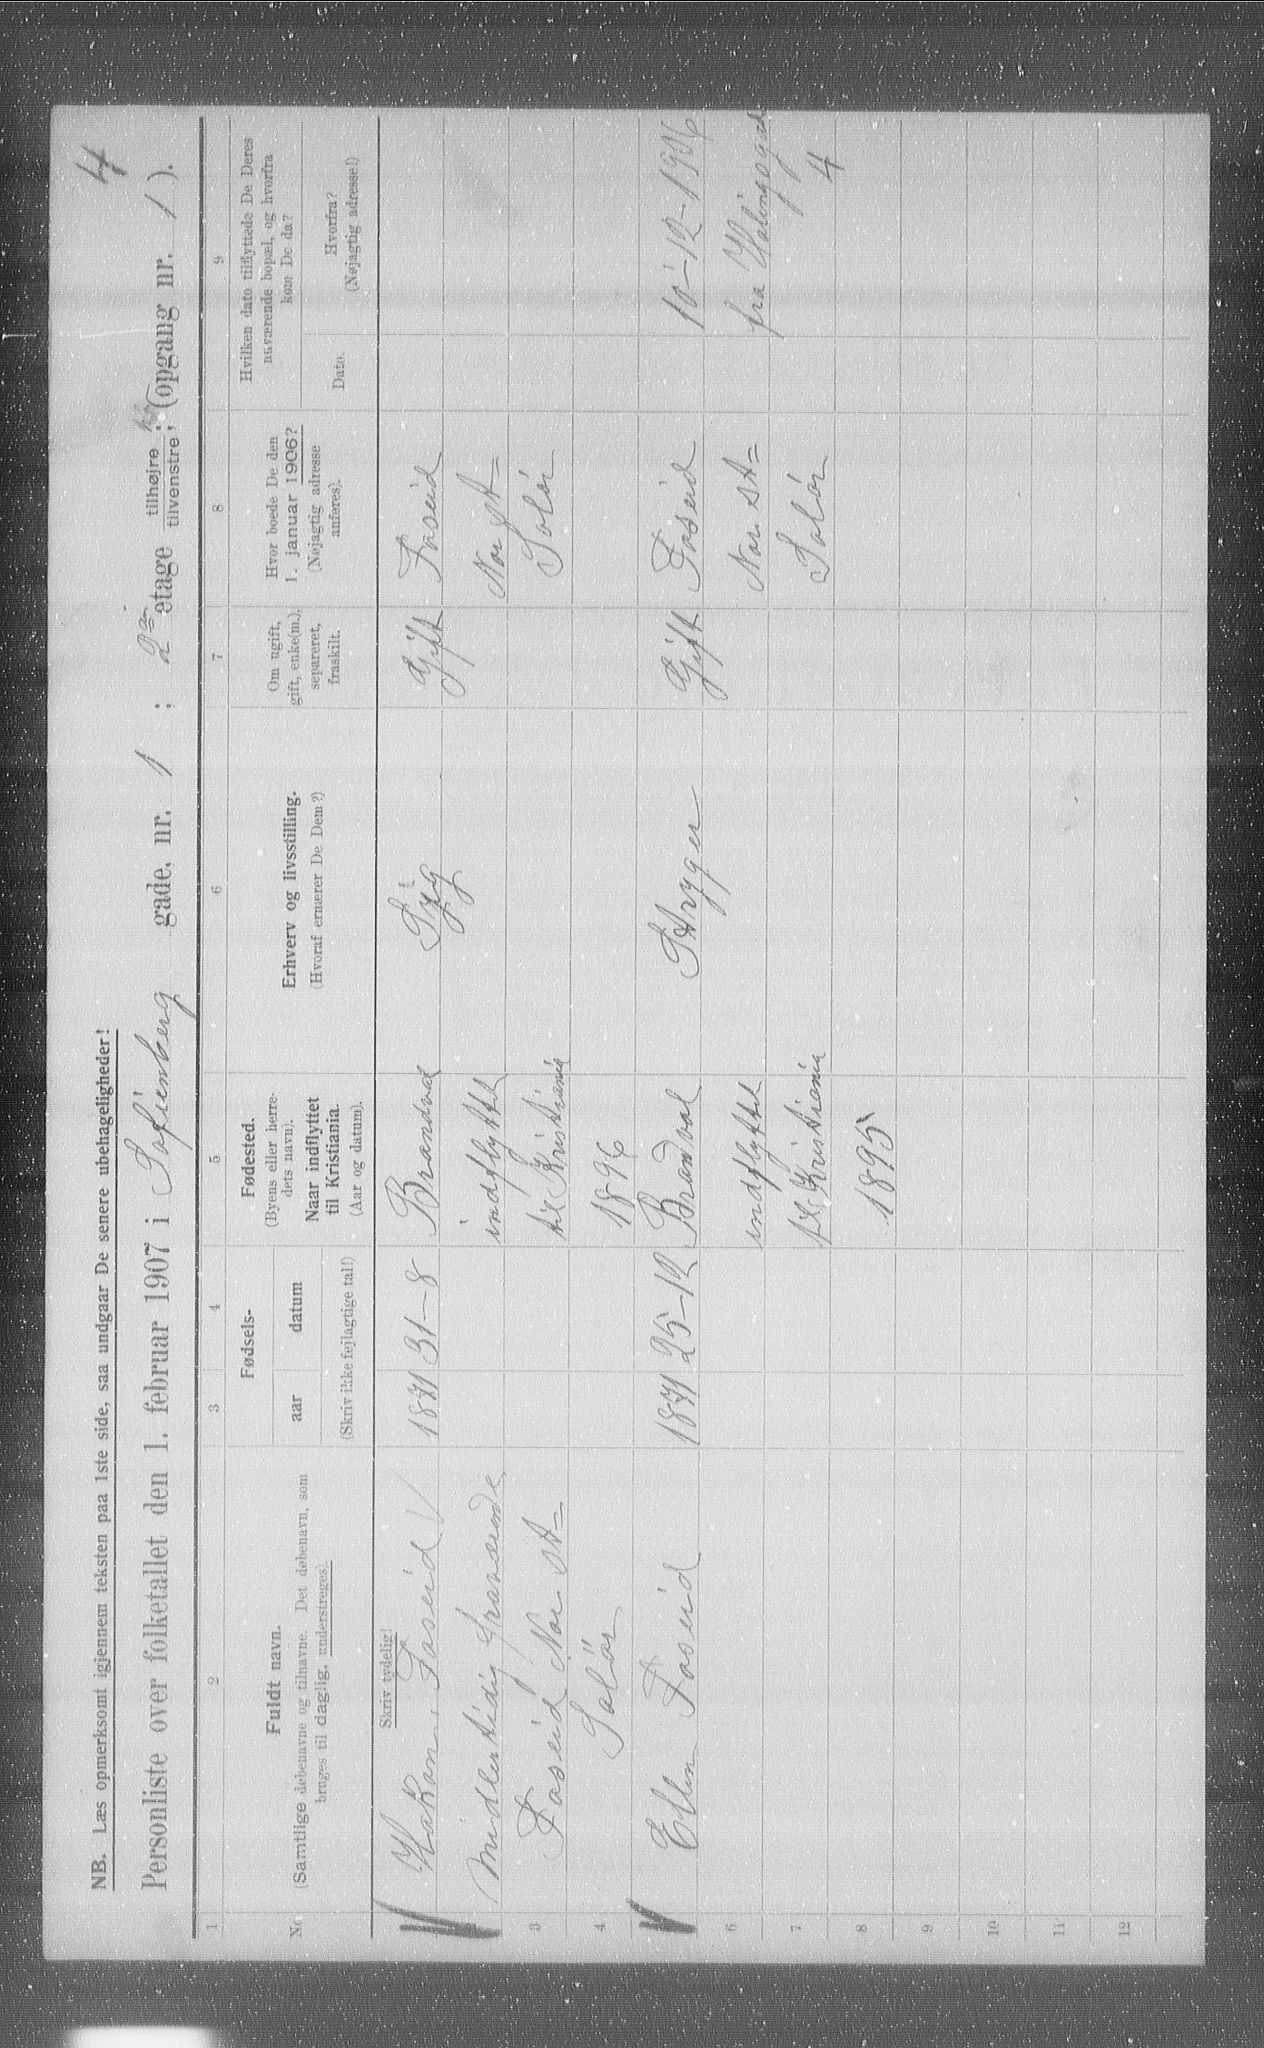 4
NB. Læs opmerksomt igjennem teksten paa 1ste side, saa undgaar De senere ubehageligheder!
Personliste over folketallet den 1. februar 1907 i Sofienberg gade, nr. 1 ; 2den etage tilhøjre tilvenstre; (opgang nr. 1 ).
1 2 3 4 5 6 7 8 9
No.
Fuldt navn.
(Samtlige døbenavne og tilnavne. Det døbenavn, som
bruges til daglig, understreges).
Fødsels-
aar datum
(Skriv ikke fejlagtige tal!)
Fødested.
(Byens eller herre-
dets navn).
Naar indflyttet
til Kristiania.
(Aar og datum).
Erhverv og livsstilling.
(Hvoraf ernærer De Dem?)
Om ugift,
gift, enke(m.),
separeret,
fraskilt.
Hvor boede De den
1. januar 1906?
(Nøjagtig adresse
anføres).
Hvilken dato tilflyttede De Deres
nuværende bopæl, og hvorfra
kom De da?
Dato.
Hvorfra?
(Nøjagtig adresse!)
Skriv tydelig!
Hakon Faseid 1871 31-8 Brandval Gift Faseid
2 midlertidig fraværende indflyttet Nor st=
3 Faseid Nor st= til Kristiania Solör
4 Solör 1896
Ellen Faseid 1871 25-12 Brandval Stryger Gift Faseid 10-12-1906
6 indflyttet Nor st= fra
7 til Kristiania Solör 4
8 1895
9
10
11
12